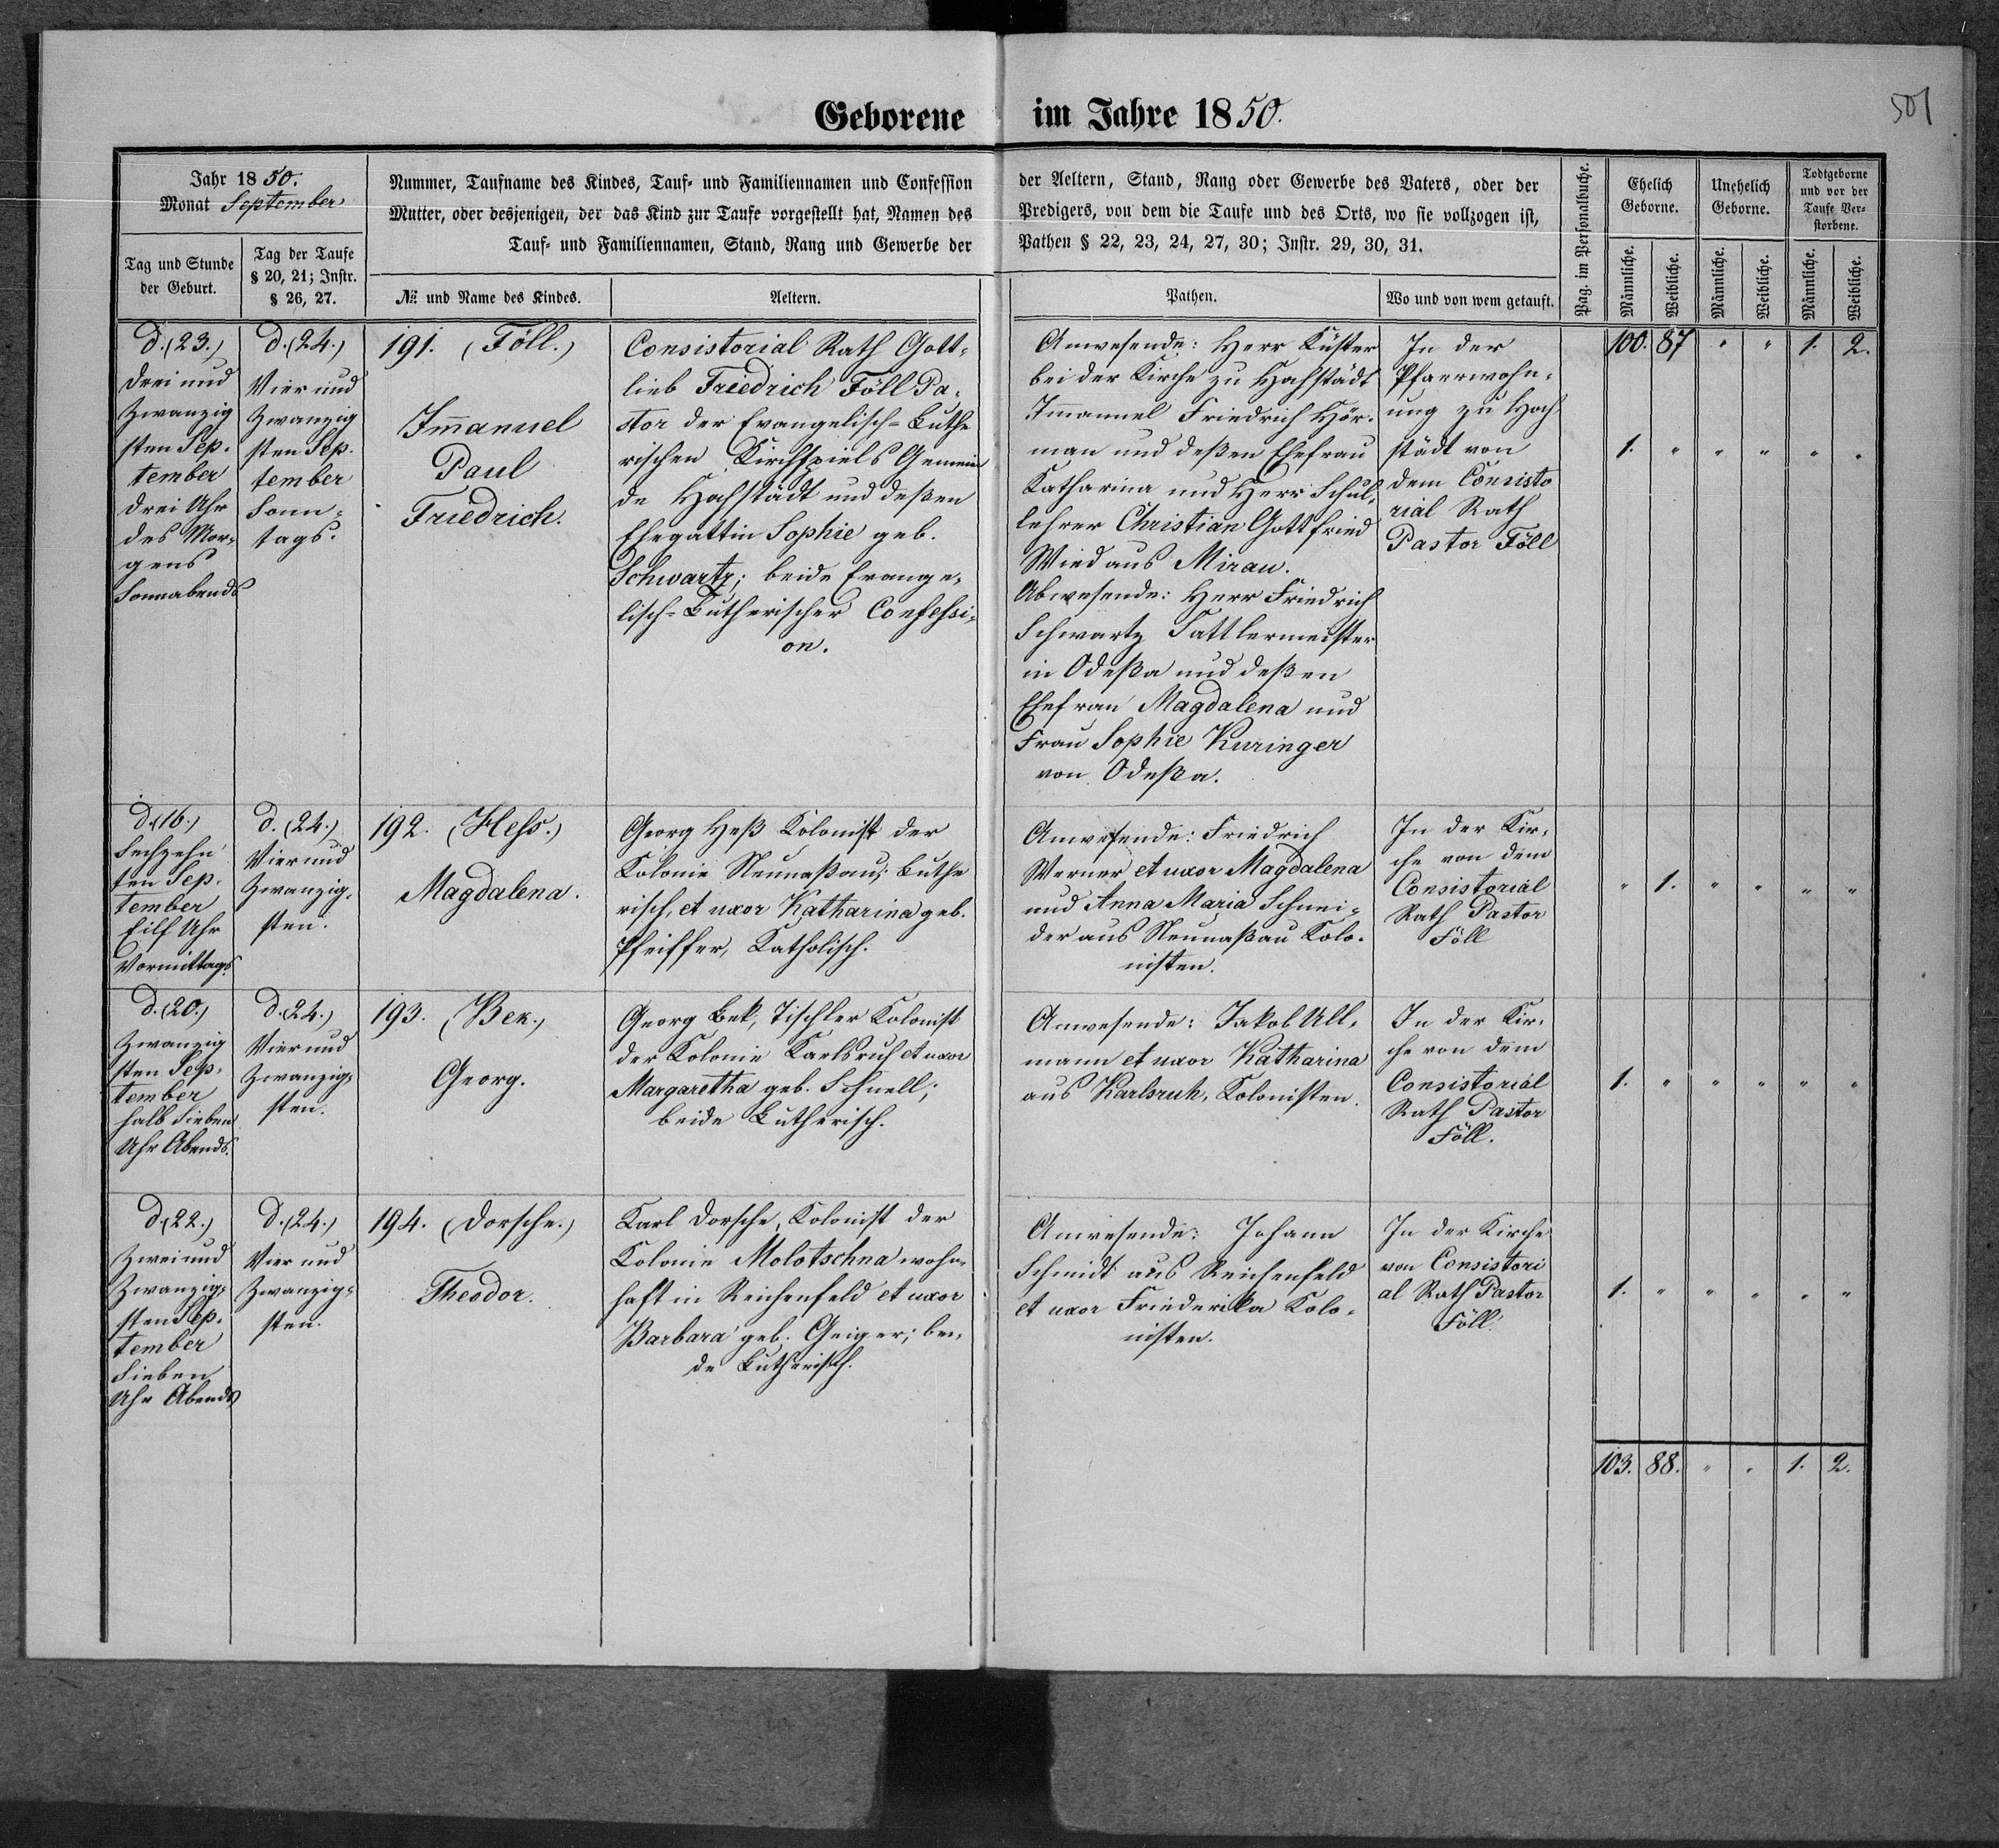 501
Geborene im Jahre 1850.
Jahr 1850.
Monat September
Tag und Stunde
der Geburt.
Tag der Taufe
§ 20, 21; Instr.
§ 26, 27.
Nummer, Taufname des Kindes, Tauf- und Familiennamen und Confession
Mutter, oder desjenigen, der das Kind zur Taufe vorgestellt hat, Namen des
Tauf- und Familiennamen, Stand, Rang und Gewerbe der
№ und Name des Kindes.
Aeltern.
der Aeltern, Stand, Rang oder Gewerbe des Vaters, oder der
Predigers, von dem die Taufe und des Orts, wo sie vollzogen ist,
Pathen § 22, 23, 24, 27, 30; Instr. 29, 30, 31.
Pathen.
Wo und von wem getauft.
Pag. im Personalbuche.
Ehelich
Geborne.
Unehelich
Geborne.
Todtgeborne
und vor der
Taufe Ver-
storbene.
Männliche.
Weibliche.
Männliche.
Weibliche.
Männliche.
Weibliche.
d. (23.)
Drei und
Zwanzig
sten Sep-
tember
Drei Uhr
des Mor-
gens
Sonnabends
d. (24.)
Vier und
Zwanzig
sten Sep-
tember
Sonn-
tags.
191. (Föll.)
Im̄anuel
Paul
Friedrich.
Consistorial Rath Gott-
lieb Friedrich Föll Pa-
stor der Evangelisch-Luthe
rischen Kirchspiels Gemein
de Hochstädt und deßen
Ehegattin Sophie geb.
Schwartz; beide Evange-
lisch-Lutherischer Confessi-
on.
Anwesende: Herr Küster
bei der Kirche zu Hochstädt
Im̄anuel Friedrich Hör-
man und deßen Ehefrau
Katharina und Herr Schul-
lehrer Christian Gottfried
Wied aus Mirau.
Abwesende: Herr Friedrich
Schwartz Sattlermeister
in Odeßa und deßen
Ehefrau Magdalena und
Frau Sophie Kuringer
von Odeßa.
In der
Pfarrwohn-
ung zu Hoch
städt von
dem Consisto
rial Rath
Pastor Föll
100. 87 " " 1. 2.
1. " " " " "
d. (16.)
Sechzehn
ten Sep-
tember
Eilf Uhr
Vormittags
d. (24.)
Vier und
Zwanzig-
sten.
192. (Hess.)
Magdalena.
Georg Heß Kolonist der
Kolonie Neunaßau; Luthe
risch, et uxor Katharina geb.
Pfeiffer, Katholisch.
Anwesende: Friedrich
Werner et uxor Magdalena
und Anna Maria Schnei-
der aus Neunaßau Kolo-
nisten.
In der Kir-
che von dem
Consistorial
Rath Pastor
Föll
" 1. " " " "
d. (20.)
Zwanzig
sten Sep-
tember
halb Sieben
Uhr Abends.
d. (24.)
Vier und
Zwanzig-
sten.
193. (Bek.)
Georg.
Georg Bek, Tischler Kolonist
der Kolonie Karlsruh et uxor
Margaretha geb. Schnell;
beide Lutherisch.
Anwesende: Jakob Ull-
mann et uxor Katharina
aus Karlsruh, Kolonisten.
In der Kir-
che von dem
Consistorial
Rath Pastor
Föll.
1. " " " " "
d. (22.)
Zwei und
Zwanzig-
sten Sep-
tember
Sieben
Uhr Abends
d. (24.)
Vier und
Zwanzig-
sten.
194. (Dorsche.)
Theodor.
Karl Dorsche, Kolonist der
Kolonie Molotschna wohn-
haft in Reichenfeld et uxor
Barbara geb. Geiger; bei-
de Lutherisch.
Anwesende: Johann
Schmidt aus Reichenfeld
et uxor Friederika Kolo-
nisten.
In der Kirche
von Consistori
al Rath Pastor
Föll.
1. " " " " "
103. 88. " " 1. 2.